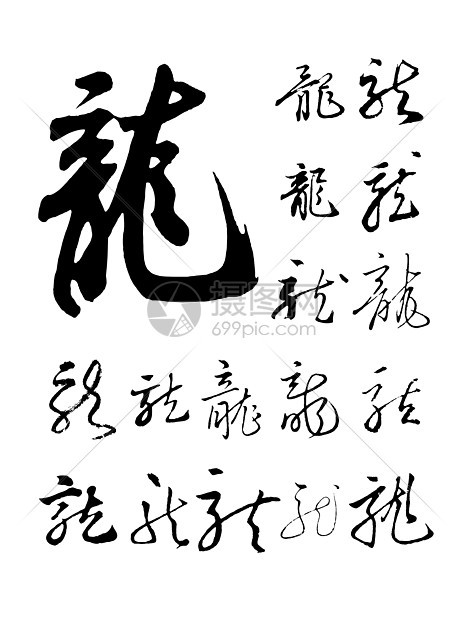 龍 龍 龍
龍 龍
龍 龍
龍 龍 龍 龍 龍
龍 龍 龍 龍 龍
摄图网
699pic.com